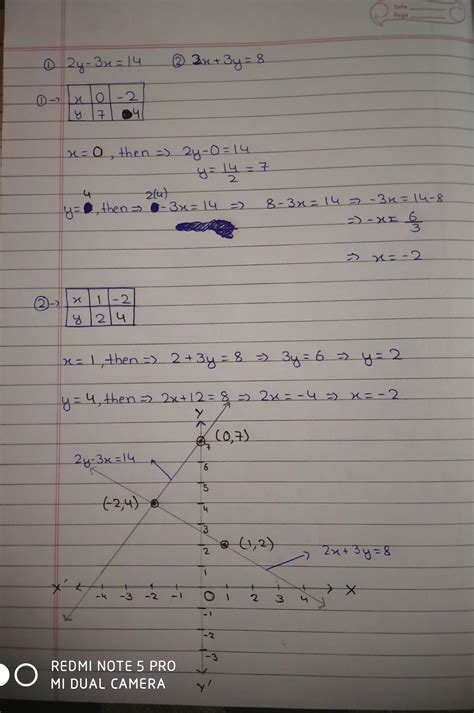 Date
Page
① 2y-3x=14 ② 2x+3y=8
①→ x 0 -2
y 7 4
x=0, then ⇒ 2y-0=14
y=14/2=7
y=4, then ⇒ 2(4)-3x=14 ⇒ 8-3x=14 ⇒ -3x=14-8
⇒ -x=6/3
⇒ x=-2
②→ x 1 -2
y 2 4
x=1, then ⇒ 2+3y=8 ⇒ 3y=6 ⇒ y=2
y=4, then ⇒ 2x+12=8 ⇒ 2x=-4 ⇒ x=-2.
Y
(0,7)
7
2y-3x=14
6
5
(-2,4) 4
3
2 (1,2)
2x+3y=8
1
X' -4 -3 -2 -1 0 1 2 3 4 X
-1
-2
-3
Y'
REDMI NOTE 5 PRO
MI DUAL CAMERA